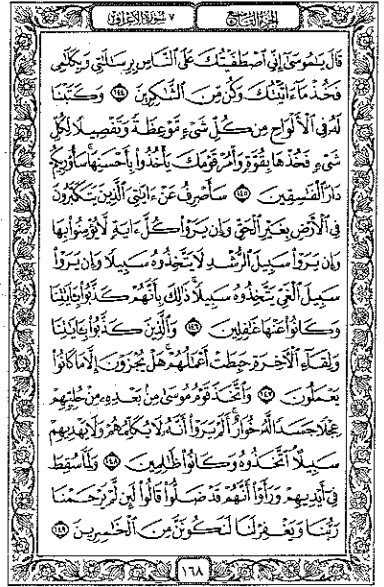 الجزء التاسع
٧ سورة الأعراف
قَالَ يَٰمُوسَىٰٓ إِنِّى ٱصۡطَفَيۡتُكَ عَلَى ٱلنَّاسِ بِرِسَٰلَٰتِى وَبِكَلَٰمِى
فَخُذۡ مَآ ءَاتَيۡتُكَ وَكُن مِّنَ ٱلشَّٰكِرِينَ ١٤٤ وَكَتَبۡنَا
لَهُۥ فِى ٱلۡأَلۡوَاحِ مِن كُلِّ شَىۡءٖ مَّوۡعِظَةٗ وَتَفۡصِيلٗا لِّكُلِّ
شَىۡءٖ فَخُذۡهَا بِقُوَّةٖ وَأۡمُرۡ قَوۡمَكَ يَأۡخُذُواْ بِأَحۡسَنِهَاۚ سَأُوْرِيكُمۡ
دَارَ ٱلۡفَٰسِقِينَ ١٤٥ سَأَصۡرِفُ عَنۡ ءَايَٰتِىَ ٱلَّذِينَ يَتَكَبَّرُونَ
فِى ٱلۡأَرۡضِ بِغَيۡرِ ٱلۡحَقِّ وَإِن يَرَوۡاْ كُلَّ ءَايَةٖ لَّا يُؤۡمِنُواْ بِهَا
وَإِن يَرَوۡاْ سَبِيلَ ٱلرُّشۡدِ لَا يَتَّخِذُوهُ سَبِيلٗا وَإِن يَرَوۡاْ
سَبِيلَ ٱلۡغَىِّ يَتَّخِذُوهُ سَبِيلٗاۚ ذَٰلِكَ بِأَنَّهُمۡ كَذَّبُواْ بِـَٔايَٰتِنَا
وَكَانُواْ عَنۡهَا غَٰفِلِينَ ١٤٦ وَٱلَّذِينَ كَذَّبُواْ بِـَٔايَٰتِنَا
وَلِقَآءِ ٱلۡأٓخِرَةِ حَبِطَتۡ أَعۡمَٰلُهُمۡۚ هَلۡ يُجۡزَوۡنَ إِلَّا مَا كَانُواْ
يَعۡمَلُونَ ١٤٧ وَٱتَّخَذَ قَوۡمُ مُوسَىٰ مِنۢ بَعۡدِهِۦ مِنۡ حُلِيِّهِمۡ
عِجۡلٗا جَسَدٗا لَّهُۥ خُوَارٌۚ أَلَمۡ يَرَوۡاْ أَنَّهُۥ لَا يُكَلِّمُهُمۡ وَلَا يَهۡدِيهِمۡ
سَبِيلًاۘ ٱتَّخَذُوهُ وَكَانُواْ ظَٰلِمِينَ ١٤٨ وَلَمَّا سُقِطَ
فِىٓ أَيۡدِيهِمۡ وَرَأَوۡاْ أَنَّهُمۡ قَدۡ ضَلُّواْ قَالُواْ لَئِن لَّمۡ يَرۡحَمۡنَا
رَبُّنَا وَيَغۡفِرۡ لَنَا لَنَكُونَنَّ مِنَ ٱلۡخَٰسِرِينَ ١٤٩
١٦٨